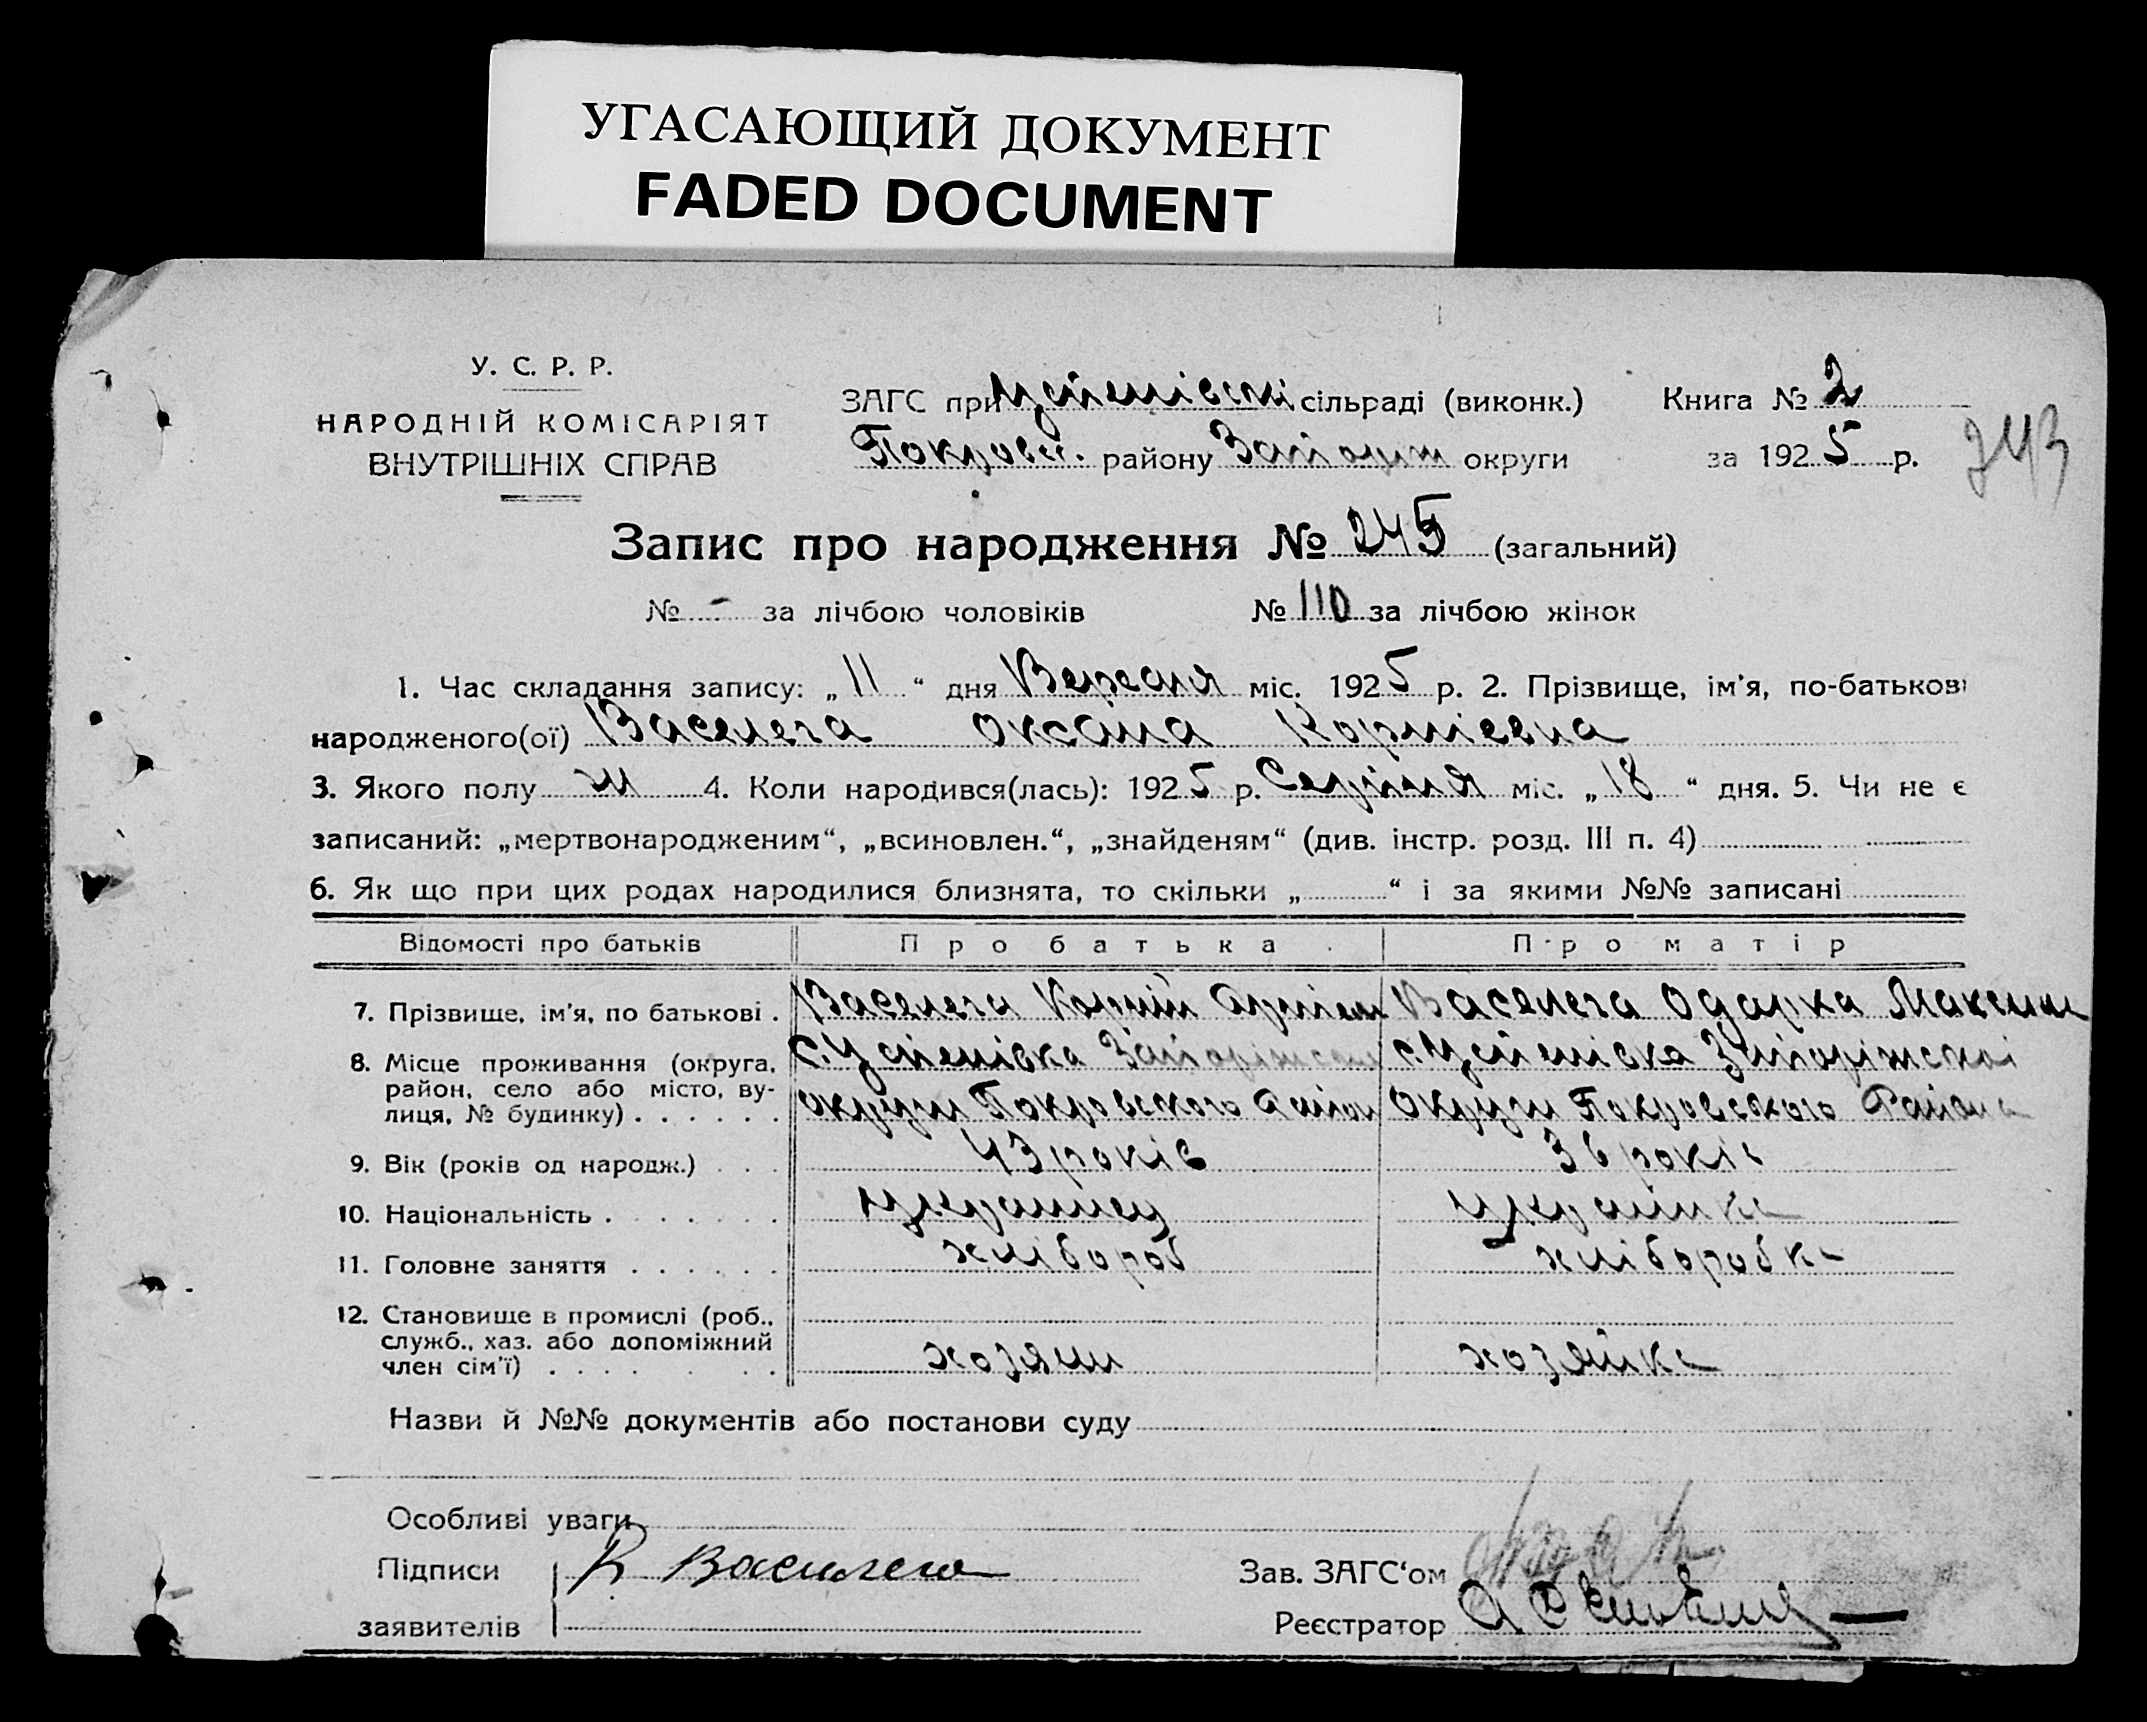 УГАСАЮЩИЙ ДОКУМЕНТ
FADED DOCUMENT
У. С. Р. Р.
НАРОДНІЙ КОМІСАРІЯТ
ВНУТРІШНІХ СПРАВ
ЗАГС при Успенівскі сільраді (виконк.)
Покровск. району Запоріж округи
Книга № 2
за 1925 р.
243
Запис про народження № 245 (загальний)
№ - за лічбою чоловіків № 110 за лічбою жінок
1. Час складання запису: „11“ дня Вересня міс. 1925 р. 2. Прізвище, ім'я, по-батькові
народженого(ої) Васелега Оксана Корніевна
3. Якого полу ж 4. Коли народився(лась): 1925 р. Серпня міс. „18“ дня. 5. Чи не є
записаний: „мертвонародженим“, „всиновлен.“, „знайденям“ (див. інстр. розд. III п. 4)
6. Як що при цих родах народилися близнята, то скільки „ “ і за якими №№ записані
Відомості про батьків Про батька Про матір
7. Прізвище, ім'я, по батькові . Васелега Корній Артем Васелега Одарка Максим
8. Місце проживання (округа, с. Успенівка Запоріжскои с. Успенівка Запоріжскоі
район, село або місто, ву-
лиця, № будинку) . . . . . . округи Покровского Район Округи Покровского Района
9. Вік (років од народж.) . . . 43 років 36 років
10. Національність . . . . . . . украинец украінка
11. Головне заняття . . . . . . хлібороб хліборобка
12. Становище в промислі (роб.,
служб., хаз. або допоміжний
член сім'ї) . . . . . . . хозяин хозяйка
Назви й №№ документів або постанови суду
Особливі уваги
Підписи К Василега Зав. ЗАГС‘ом
заявителів Реєстратор